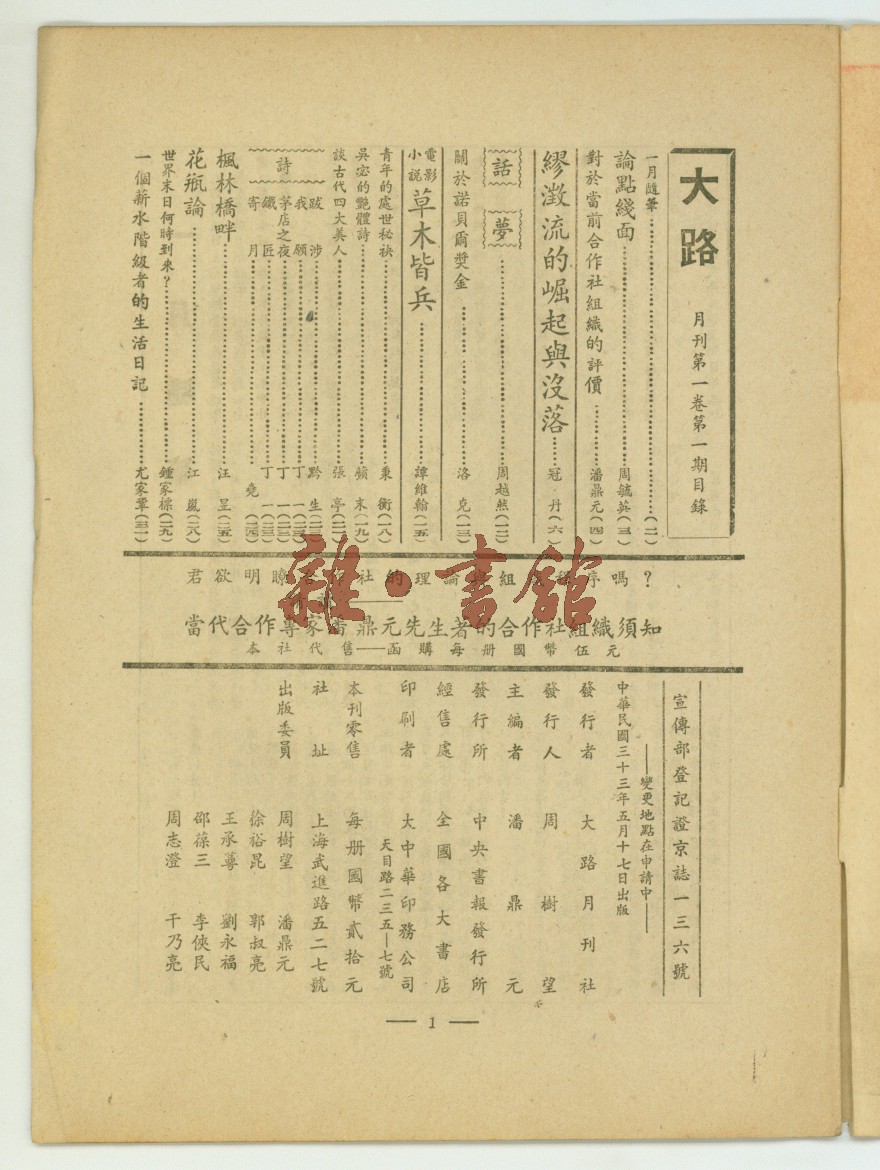 大路
月刊第一卷第一期目錄
一月隨筆……(二)
論點綫面……周毓英(三)
對於當前合作社組織的評價……潘鼎元(四)
繆澂流的崛起與沒落……冠丹(六)
話夢……周越然(一二)
關於諾貝爾獎金……洛克(一三)
電影小説 草木皆兵……譚維翰(一五)
青年的處世秘袂……秉衡(一八)
吳宓的艷體詩……蘋末(一九)
談古代四大美人……張亭(二一)
詩
跋涉……黔生
我願……丁一
茅店之夜……丁一
鐵匠……丁一
寄月……堯(二四)
楓林橋畔……汪呈(二五)
花瓶論……江嵐(二八)
世界末日何時到來?……鍾家標(二九)
一個薪水階級者的生活日記……尤家覃(三一)
君欲明瞭合作社的理論與組織程序嗎?
當代合作專家潘鼎元先生著的合作社組織須知
本社代售——函購每册國幣伍元
宣傳部登記證京誌一三六號
——變更地點在申請中——
中華民國三十三年五月十七日出版
發行者 大路月刊社
發行人 周樹望
主編者 潘鼎元
發行所 中央書報發行所
經售處 全國各大書店
印刷者 大中華印務公司
天目路二三五—七號
本刊零售 每册國幣貳拾元
社址 上海武進路五二七號
出版委員 周樹望 潘鼎元
徐裕昆 郭叔亮
王承蓴 劉永福
邵葆三 李俠民
周志澄 干乃亮
— 1 —
雜·書館